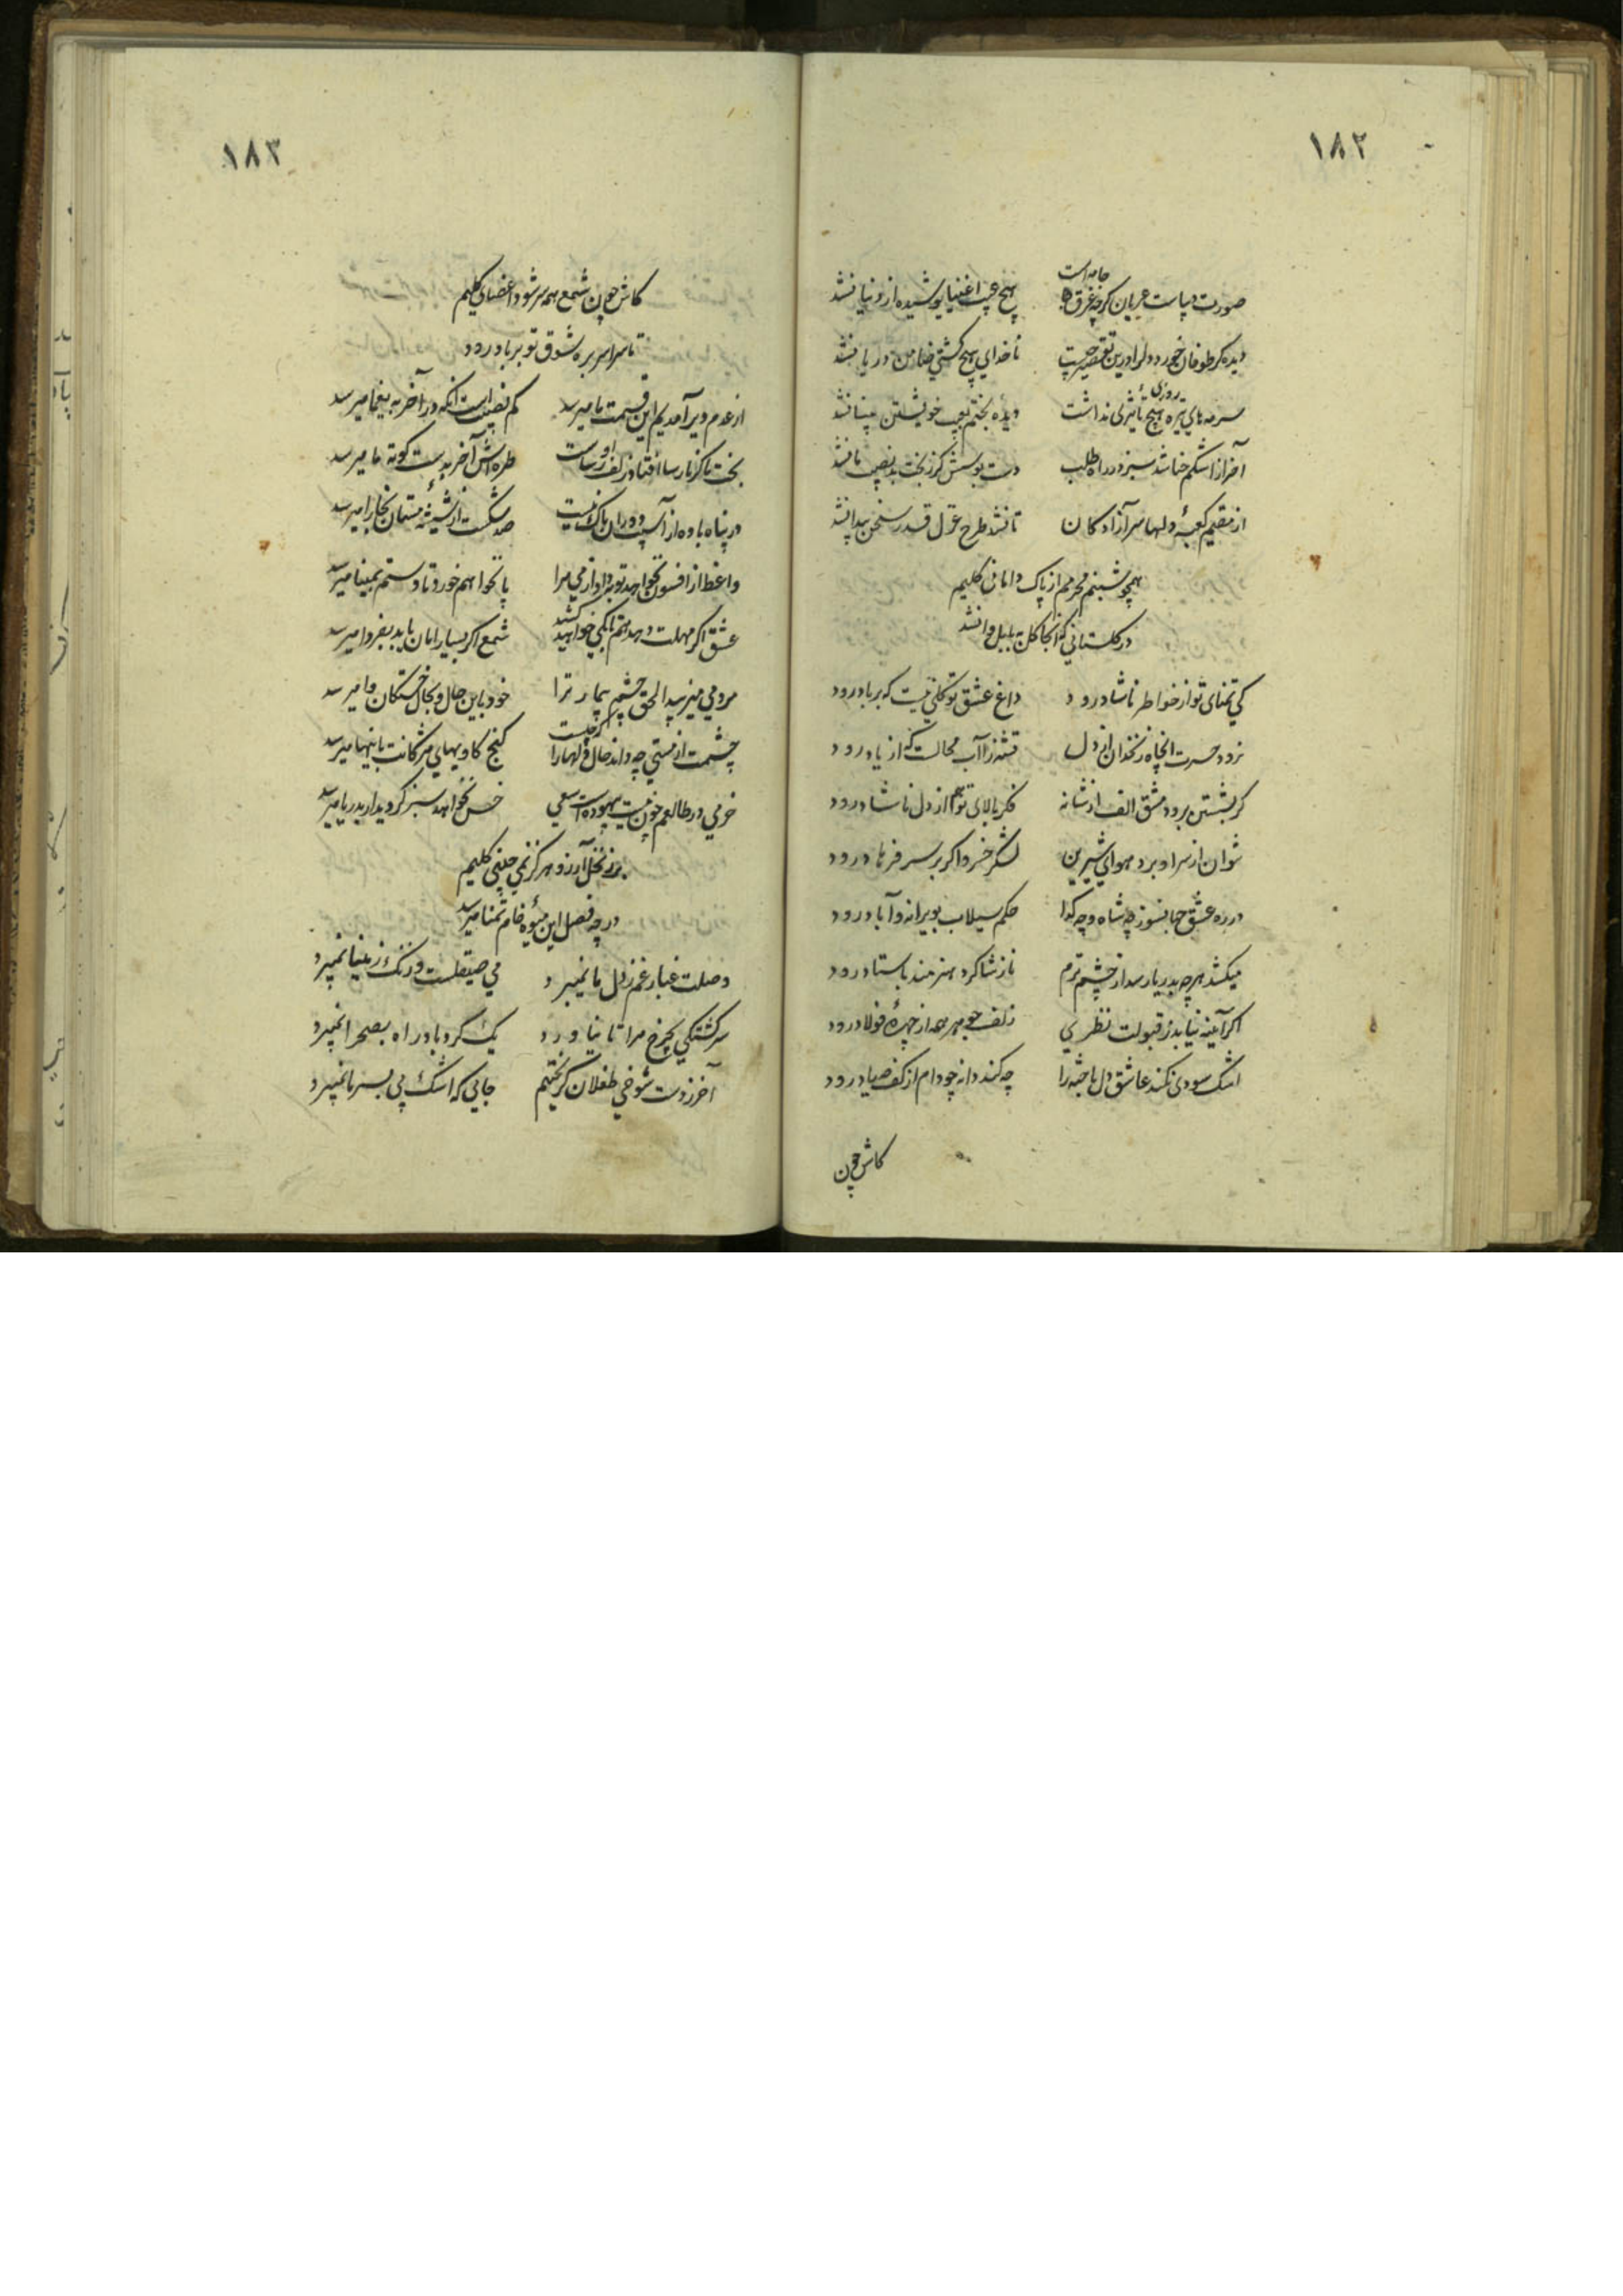 ١٨٢
صورت دیباست عریان گرچه غرق جامه است
هیچ عیب اغنیا پوشیده از دنیا نشد
دیده گر طوفان خورد دل را درین تقصیر چیست
ناخدای هیچ کشتی ضامن دریا نشد
سرمه‌های تیره روزی هیچ تأثیری نداشت
دیده بختم بعیب خویشتن بینا نشد
آخر از اشکم حنا شد سبز در راه طلب
دست بوسش کز بخت بد نصیب ما نشد
از مقیم کعبهٔ دلها سر آزادکان
تا نشد طرح غزل قدر سخن پیدا نشد
همچو شبنم محرمم از پاک دامانی کلیم
در گلستانی که آنجا گل به بلبل وا نشد
کی تمنای تو از خواطر ناشاد رود
داغ عشق تو گلی نیست که بر باد رود
نرود حسرت آن چاه زنخدان از دل
تشنه را آب محالست که از یاد رود
گر بشستن برود مشق الف از شانه
فکر بالای تو هم از دل ناشاد رود
نتوان از سر او برد هوای شیرین
لشکر خسرو اگر بر سر فرهاد رود
در ره عشق جهانسوز چه شاه و چه گدا
حکم سیلاب بویرانه و آباد رود
میکشد هرچه بدریا رسد از چشم ترم
ناز شاگرد هنرمند باستاد رود
اگر آیینه نیابد ز قبولت نظری
زلف جوهر همه از چهرهٔ فولاد رود
اشک سودی نکند عاشق دل باخته را
چه کند دانه چو دام از کف صیاد رود
کاش چون
١٨٣
کاش چون شمع همه سر شود اعضای کلیم
تا سراسر بره شوق تو بر باد رود
از عدم دیر آمدیم این قسمت ما میرسد
کم نصیب است آنکه در آخر به یغما میرسد
بخت ما گر نارسا افتاد زلف او رساست
طره‌اش آخر بدست کوته ما میرسد
در پناه باده از آسیب دوران باک نیست
صد شکست از شیشهٔ مستان بخارا میرسد
واعظ از افسون نخواهد توبه داد از می مرا
پا نخواهم خورد تا دستم بمینا میرسد
عشق اگر مهلت دهد هجرانم آنگه خواهد کشت
شمع اگر بسیار امان یابد بفردا میرسد
مردمی میزیبد الحق چشم بیمار ترا
خود باین حال و بحال خستگان وا میرسد
چشمت از مستی چه داند حال دلها را که چیست
کنج کاویهای مژگانت باینها میرسد
خرمی در طالعم چون نیست بیهوده است سعی
خس نخواهد سبز گردید ار بدریا میرسد
بر ز نخل آرزو هرگز نمی چینی کلیم
در چه فصل این میوهٔ خام تمنا میرسد
وصلت غبار غم ز دل ما نمیبرد
می صیقلست و زنگ ز مینا نمیبرد
سرگشتگی بچرخ مرا تا نیاورد
یک گردباد راه بصحرا نمیبرد
آخر ز دست شوخی طفلان گریختیم
جایی که اشک پی بسر ما نمیبرد